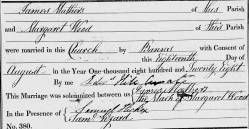 James Mathers of this Parish
and Margaret Word of this Parish
were married in this Church by Banns with Consent of
this Eighteenth Day of
August in the Year One thousand eight hundred and Twenty Eight
By me
This Marriage was solemnized between us James Mathers
The Mark of Margaret Word
In the Presence of Samuel
Jane Izard
No. 380.